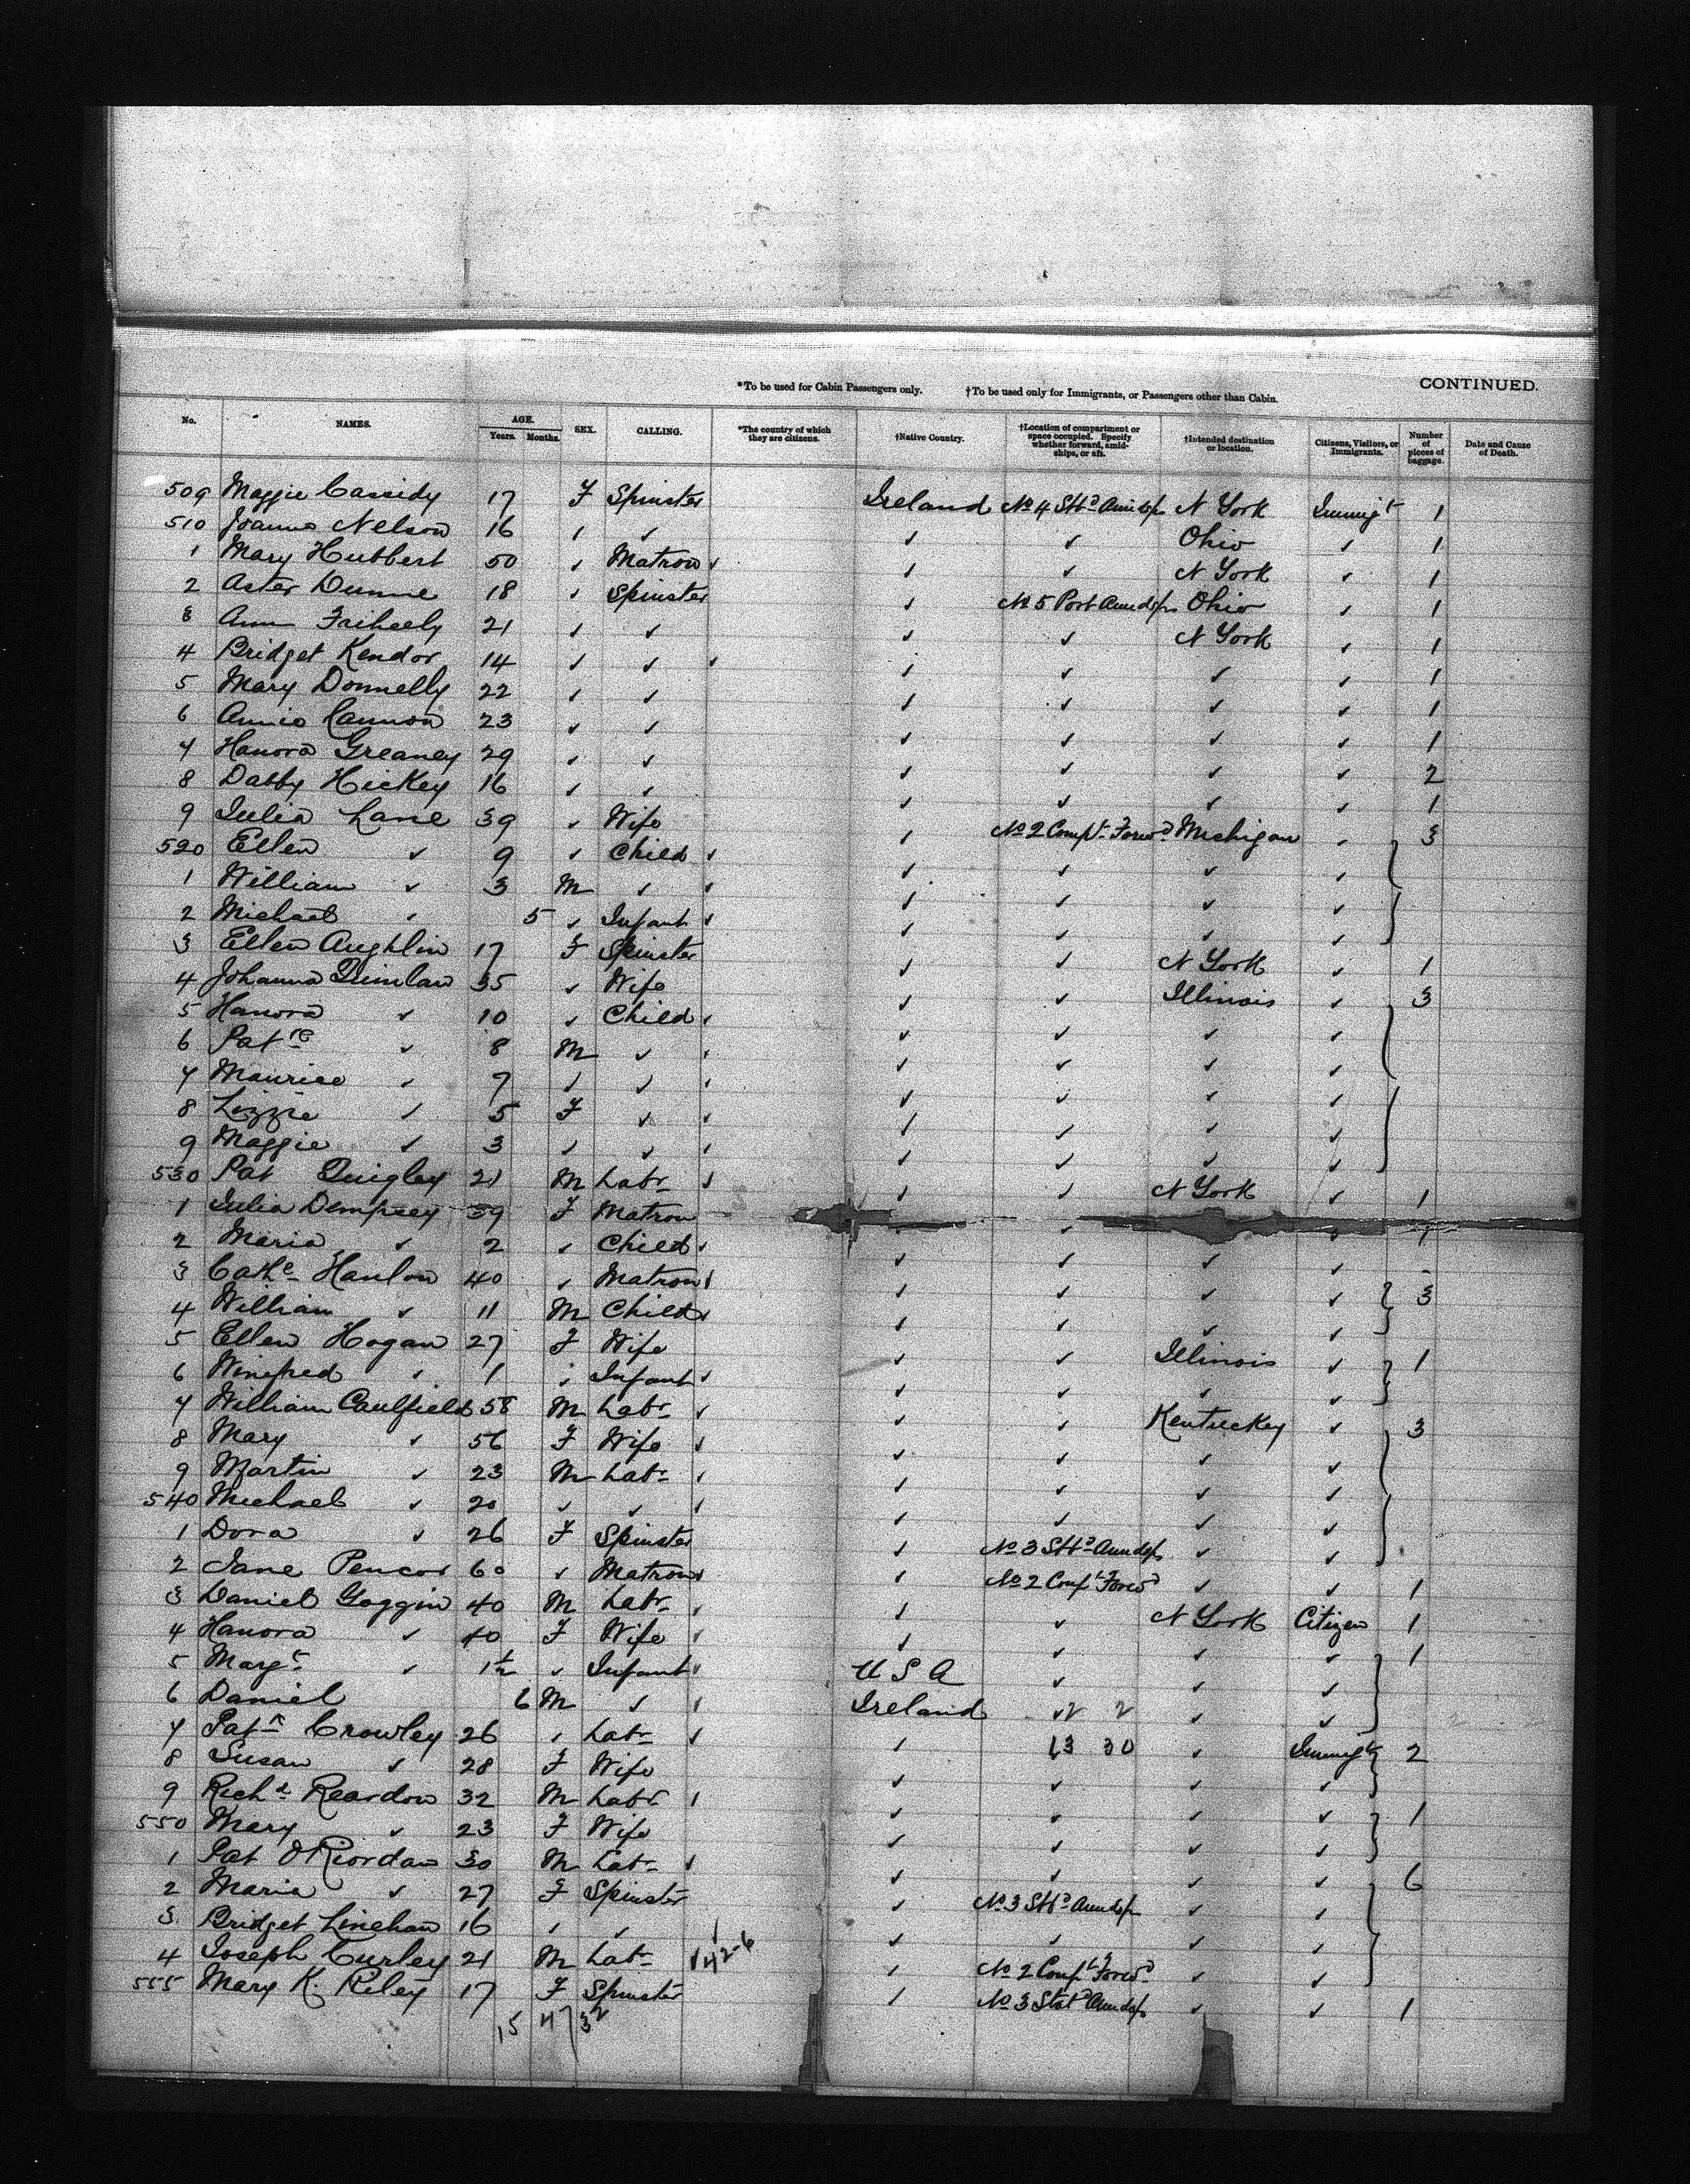 *To be used for Cabin Passengers only. †To be used only for Immigrants, or Passengers other than Cabin. CONTINUED.
No. NAMES. AGE. Years. Months. SEX. CALLING. *The country of which they are citizens. †Native Country. †Location of compartment or space occupied. Specify whether forward, amidships, or aft. †Intended destination or location. Citizens, Visitors, or Immigrants. Number of pieces of baggage. Date and Cause of Death.
509 Maggie Cassidy 17 F Spinster Ireland No 4 Stbd Amidsps N York Immigt 1
510 Joanna Nelson 16 ✓ ✓ ✓ ✓ Ohio ✓ 1
1 Mary Hubbert 50 ✓ Matron ✓ ✓ N York ✓ 1
2 Aster Dunne 18 ✓ Spinster ✓ No 5 Port Amdsps Ohio ✓ 1
3 Ann 21 ✓ ✓ ✓ ✓ N York ✓ 1
4 Bridget Kendor 14 ✓ ✓ ✓ ✓ ✓ ✓ 1
5 Mary Donnelly 22 ✓ ✓ ✓ ✓ ✓ ✓ 1
6 Annie Cannon 23 ✓ ✓ ✓ ✓ ✓ ✓ 1
7 Hanora Greaney 29 ✓ ✓ ✓ ✓ ✓ ✓ 2
8 Dabby Hickey 16 ✓ ✓ ✓ ✓ ✓ ✓ 1
9 Julia Lane 39 ✓ Wife ✓ No 2 Compt Forwd Michigan ✓ 3
520 Ellen ✓ 9 ✓ Child ✓ ✓ ✓ ✓
1 William ✓ 3 M ✓ ✓ ✓ ✓ ✓
2 Michael ✓ 5 ✓ Infant ✓ ✓ ✓ ✓
3 Ellen Aughlin 17 F Spinster ✓ ✓ N York ✓ 1
4 Johanna Quinlan 35 ✓ Wife ✓ ✓ Illinois ✓ 3
5 Hanora ✓ 10 ✓ Child ✓ ✓ ✓ ✓
6 Patrc ✓ 8 M ✓ ✓ ✓ ✓ ✓
7 Maurice ✓ 7 ✓ ✓ ✓ ✓ ✓ ✓
8 Lizzie ✓ 5 F ✓ ✓ ✓ ✓ ✓
9 Maggie ✓ 3 ✓ ✓ ✓ ✓ ✓ ✓
530 Pat Quigley 21 M Labr ✓ ✓ N York ✓ 1
1 Julia Dempsey 39 F Matron ✓ ✓ 1
2 Maria ✓ 2 ✓ Child ✓ ✓ ✓ ✓
3 Cathe Hanlon 40 ✓ Matron ✓ ✓ ✓ ✓ 3
4 William ✓ 11 M Child ✓ ✓ ✓ ✓
5 Ellen Hogan 27 F Wife ✓ ✓ Illinois ✓ 1
6 Winefred ✓ 1 ✓ Infant ✓ ✓ ✓ ✓
7 William Caulfield 58 M Labr ✓ ✓ Kentuckey ✓ 3
8 Mary ✓ 56 F Wife ✓ ✓ ✓ ✓
9 Martin ✓ 23 M Labr ✓ ✓ ✓ ✓
540 Michael ✓ 20 ✓ ✓ ✓ ✓ ✓ ✓
1 Dora ✓ 26 F Spinster ✓ No 3 Stbd Amdsps ✓ ✓
2 Jane 60 ✓ Matron ✓ No 2 Compt Forwd ✓ ✓ 1
3 Daniel Goggin 40 M Labr ✓ ✓ N York Citizen 1
4 Hanora ✓ 40 F Wife ✓ ✓ ✓ ✓ 1
5 Margt ✓ 1½ ✓ Infant U S A ✓ ✓ ✓
6 Daniel 6 M ✓ Ireland ✓ 2 2 ✓ ✓
7 Patk Crowley 26 ✓ Labr ✓ 13 30 ✓ Immigt 2
8 Susan ✓ 28 F Wife ✓ ✓ ✓ ✓
9 Richd Reardon 32 M Labr ✓ ✓ ✓ ✓ 1
550 Mary ✓ 23 F Wife ✓ ✓ ✓ ✓
1 Pat O'Riordan 30 M Labr ✓ ✓ ✓ ✓ 6
2 Maria ✓ 27 F Spinster ✓ No 3 Stbd Amdsps ✓ ✓
3 Bridget Linehan 16 ✓ ✓ ✓ ✓ ✓ ✓
4 Joseph Curley 21 M Labr ✓ 42-6 No 2 Compt Forwd ✓ ✓
555 Mary K. Riley 17 F Spinster ✓ No 3 Stbd Amdsps ✓ ✓ 1
15 47 32